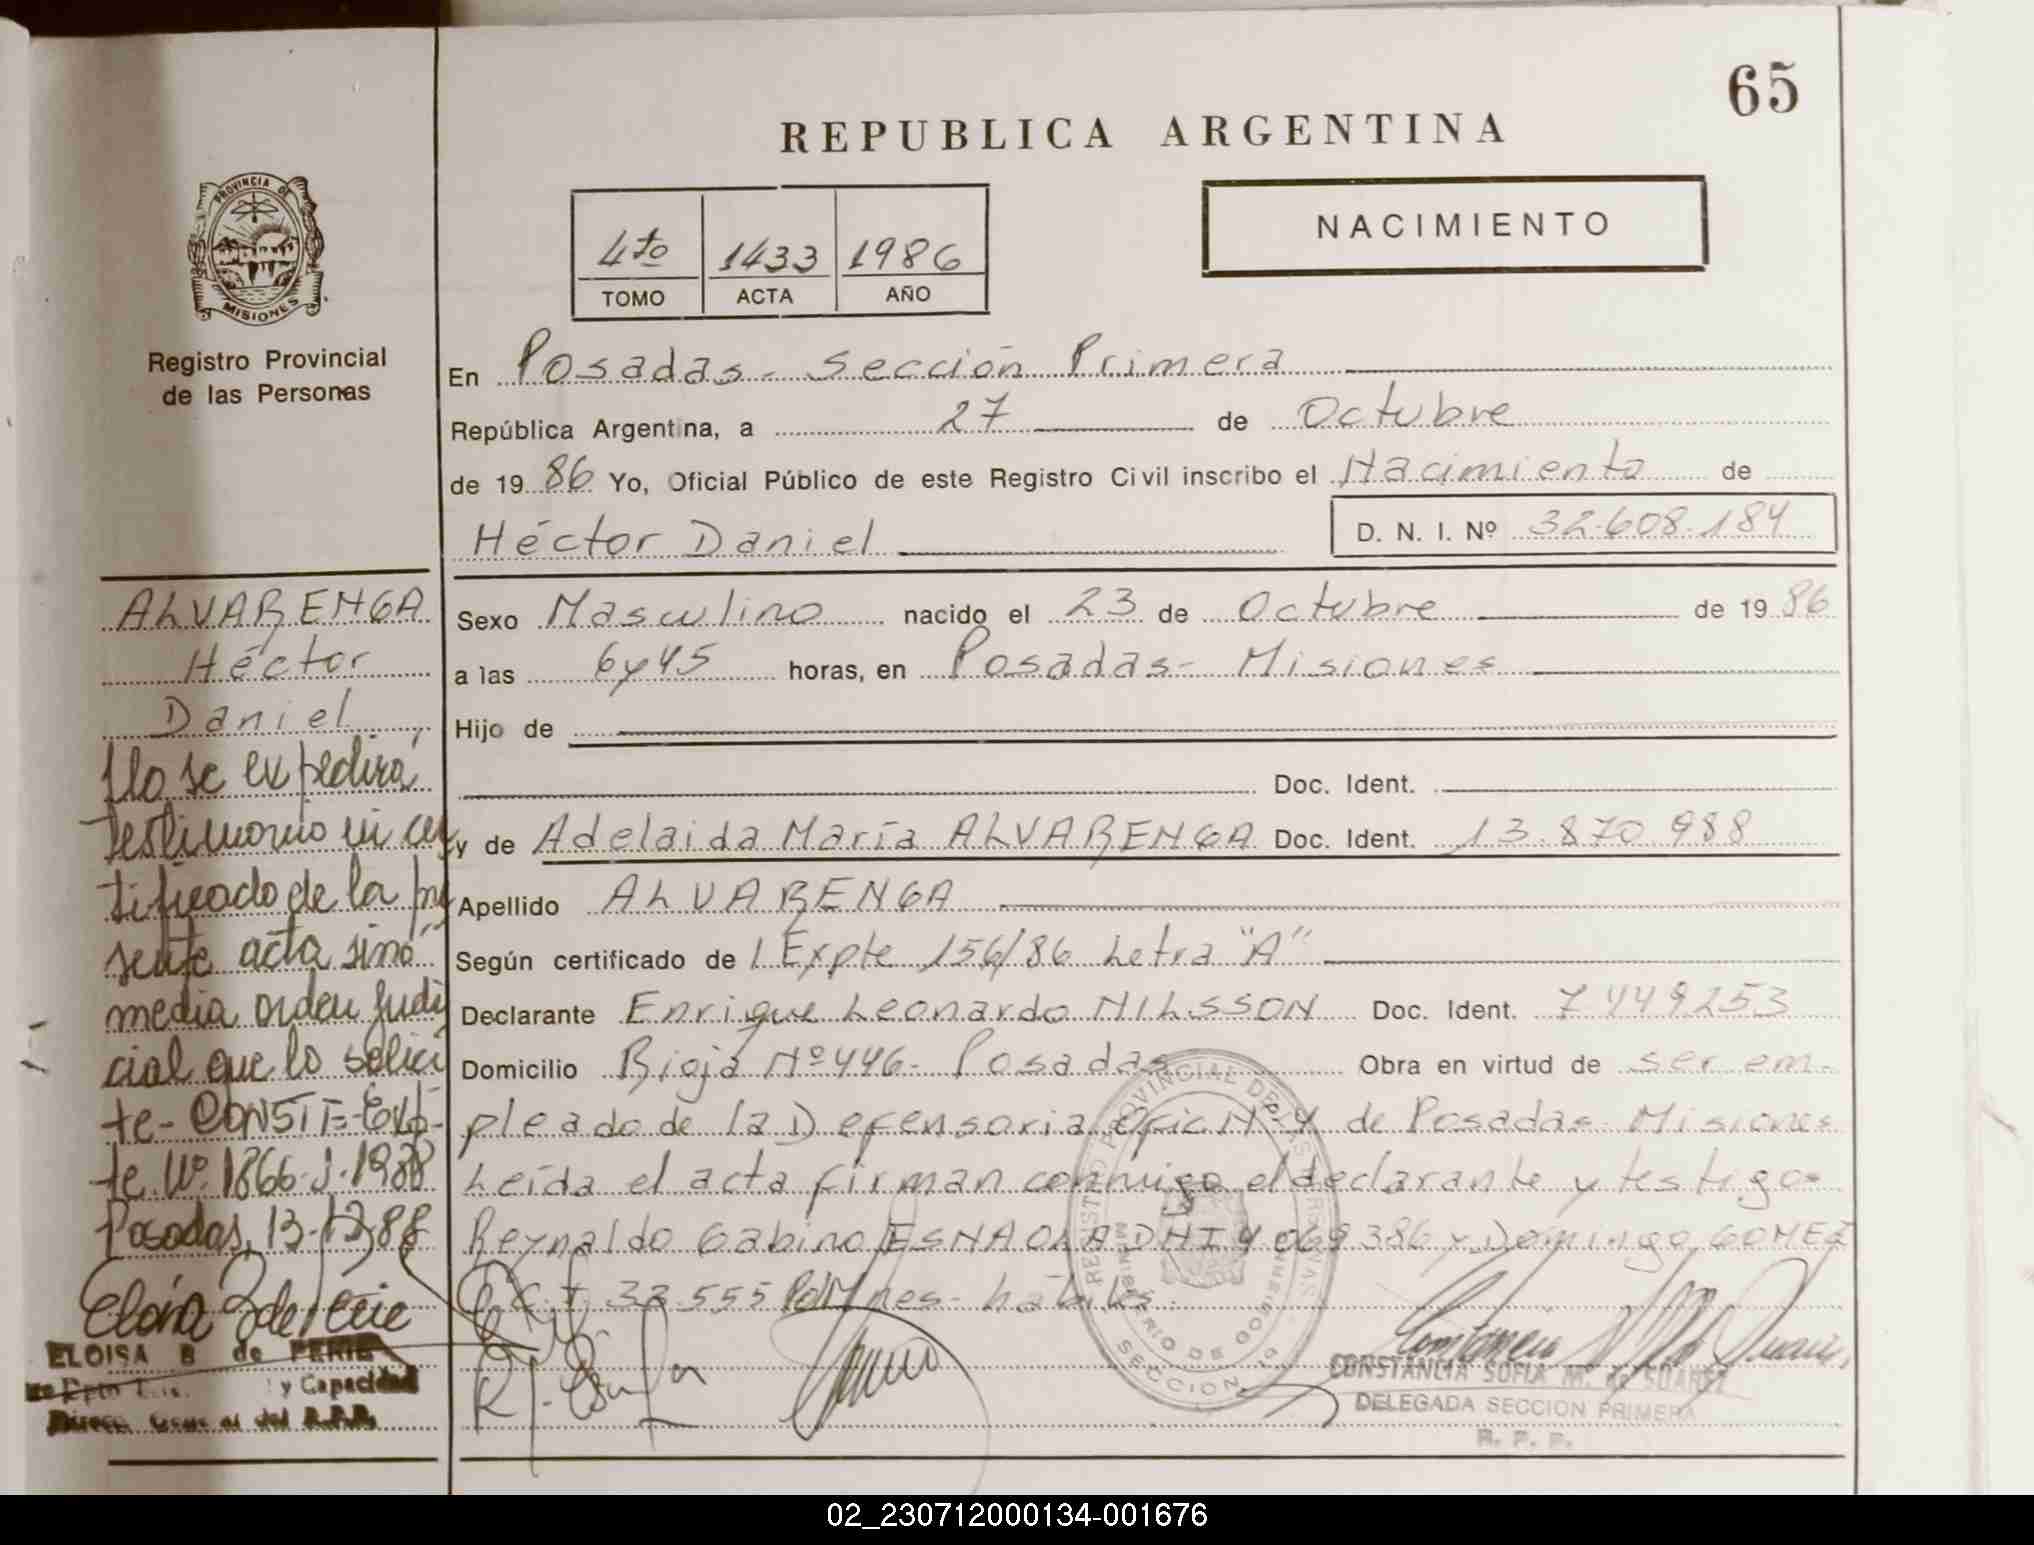 65
REPUBLICA ARGENTINA
NACIMIENTO
4to 1433 1986
TOMO ACTA AÑO
PROVINCIA DE
MISIONES
Registro Provincial
de las Personas
En Posadas - Sección Primera
República Argentina, a 27 de Octubre
de 1986 Yo, Oficial Público de este Registro Civil inscribo el Nacimiento de
Héctor Daniel D. N. I. Nº 32.608.184
Sexo Masculino nacido el 23 de Octubre de 1986
a las 6y45 horas, en Posadas - Misiones
Hijo de
Doc. Ident.
y de Adelaida María ALVARENGA Doc. Ident. 13.870.988
Apellido ALVARENGA
Según certificado de Expte 156/86 Letra "A"
Declarante Enrique Leonardo NILSSON Doc. Ident. 7449253
Domicilio Rioja Nº 446 - Posadas Obra en virtud de ser em-
pleado de la Defensoria Ofic Nº 4 de Posadas Misiones
Leída el acta firman conmigo el declarante y testigos
Reynaldo Gabino ESNAOLA DNI 4069386 y Domingo GOMEZ
C.I. 33.555 Pol Mnes - hábiles.
ALVARENGA
Héctor
Daniel
No se expedirá
testimonio ni cer
tificado de la pre
sente acta sino
media orden judi
cial que lo solici
te - CONSTE - Exp-
te. Nº 1866-J-1988
Posadas, 13-12-88
ELOISA B de PERIE
y Capacidad
REGISTRO PROVINCIAL DE LAS PERSONAS
MINISTERIO DE GOBIERNO
SECCION
CONSTANCIA SOFIA M. de SUAREZ
DELEGADA SECCION PRIMERA
R. P. P.
02_230712000134-001676